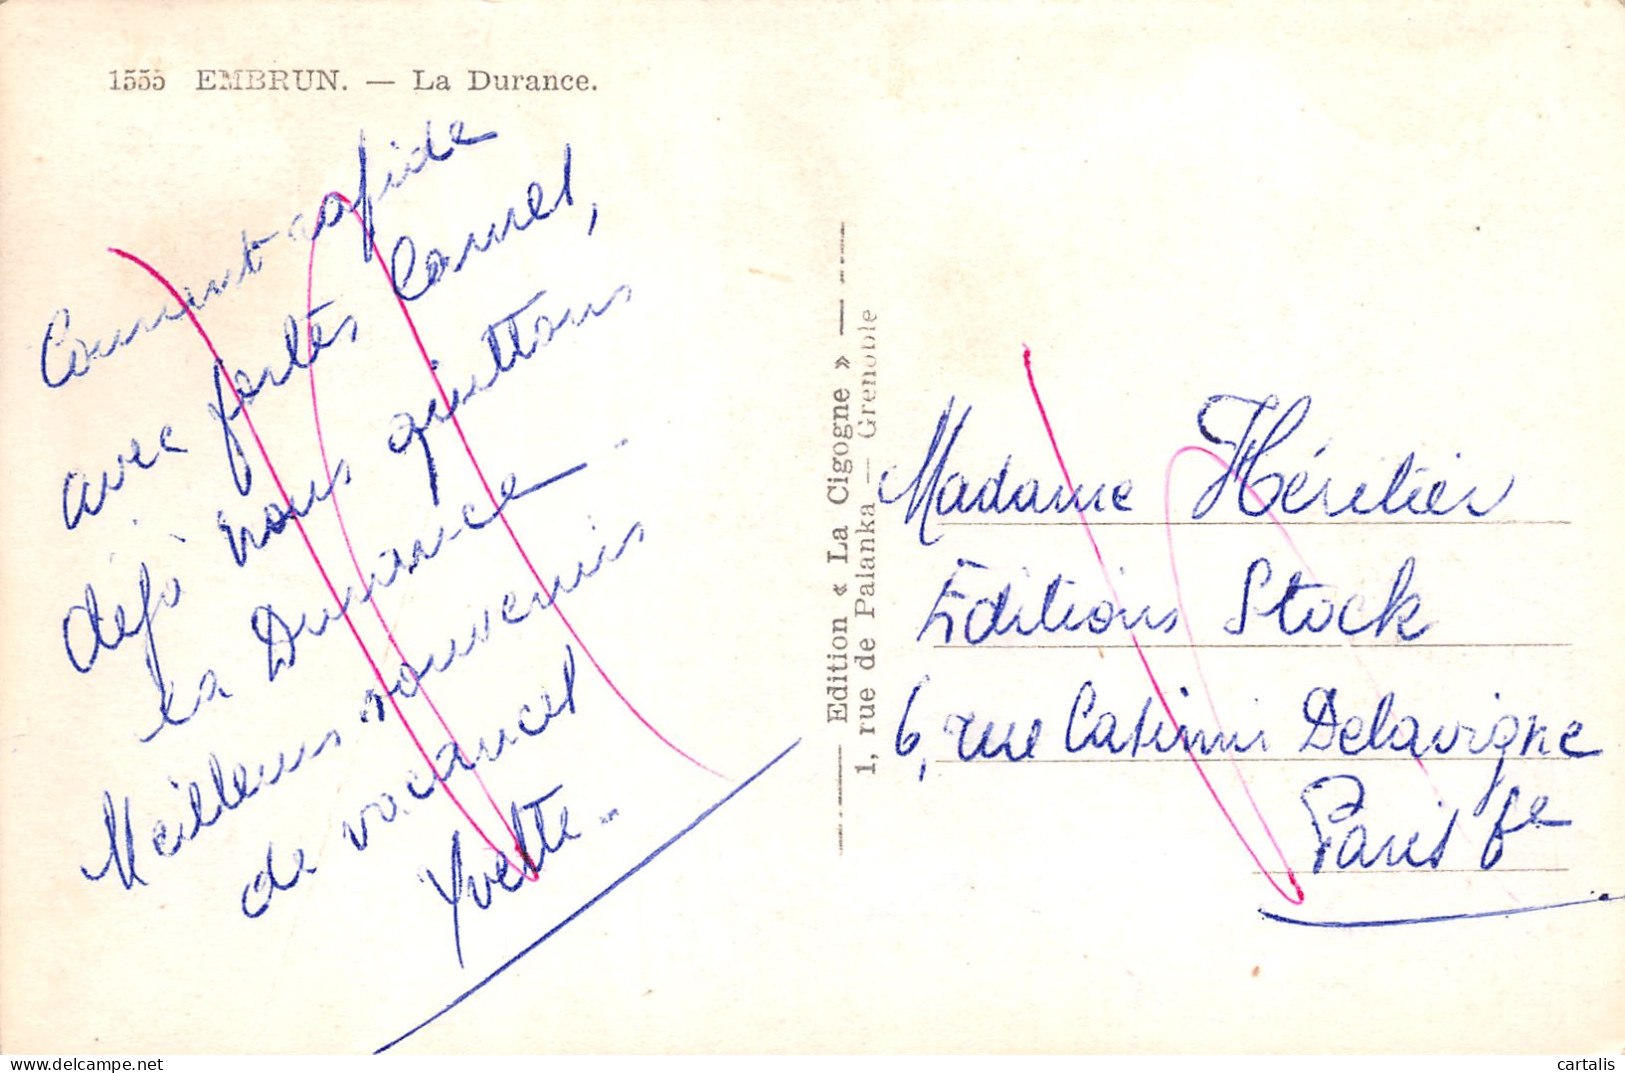 1555 EMBRUN. — La Durance.
Courant rapide
avec fortes
déjà nous quittons
la Durance -
Meilleurs souvenirs
de vacances
Yvette.
Edition « La Cigogne »
1, rue de Palanka — Grenoble
Madame Héritier
Editions Stock
6, rue Casimir Delavigne
Paris 6e
cartalis